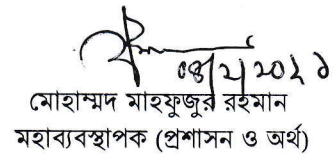 ০৪/২/২০২১
মোহাম্মদ মাহফুজুর রহমান
মহাব্যবস্থাপক (প্রশাসন ও অর্থ)